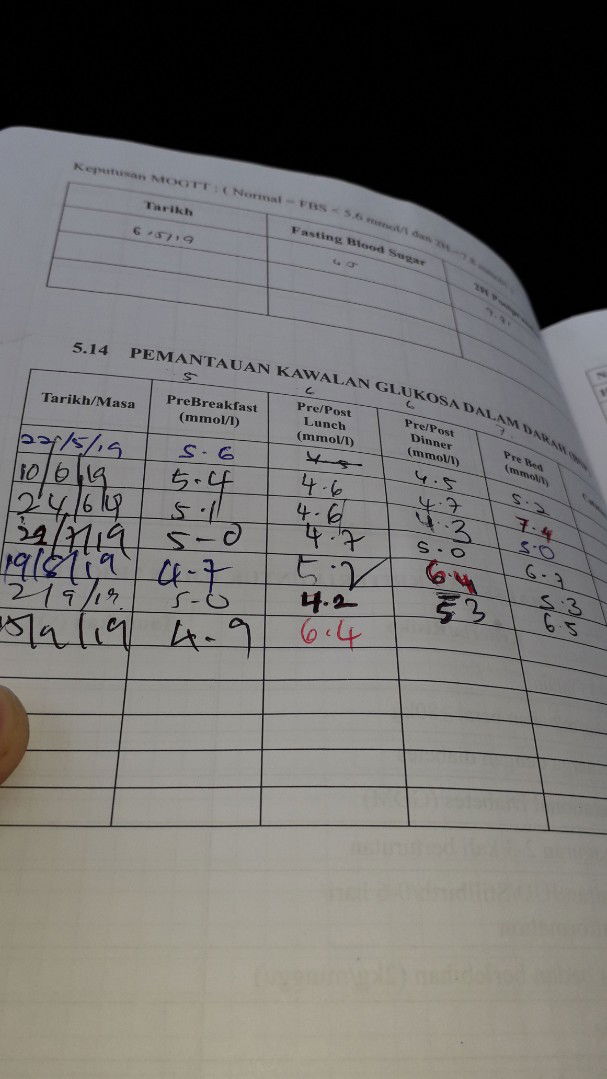 Keputusan MOGTT : ( Normal = FBS < 5.6 mmol/l dan 2H
Tarikh Fasting Blood Sugar 2H
6/5/19
5.14 PEMANTAUAN KAWALAN GLUKOSA DALAM DARAH
5 6 6 7
Tarikh/Masa PreBreakfast (mmol/l) Pre/Post Lunch (mmol/l) Pre/Post Dinner (mmol/l) Pre Bed (mmol/l)
22/5/19 5.6 4.5 5.2
10/6/19 5.4 4.6 4.7 7.4
24/6/19 5.1 4.6 4.3 5.0
29/7/19 5-0 4.7 5.0 6.7
19/8/19 4-7 5.2 6.4 5.3
2/9/19 5-0 4.2 53 6.5
15/9/19 4-9 6.4